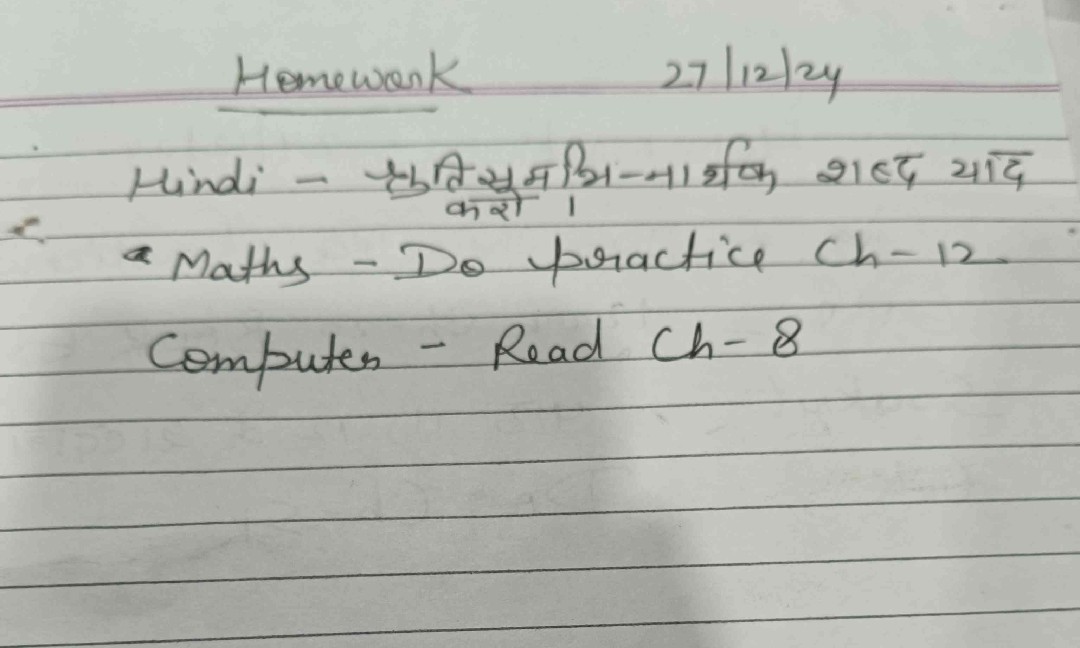 Homework 27/12/24
Hindi - श्रुतिसमभिन्नार्थक शब्द याद
करो ।
Maths - Do practice Ch - 12
Computer - Read Ch - 8